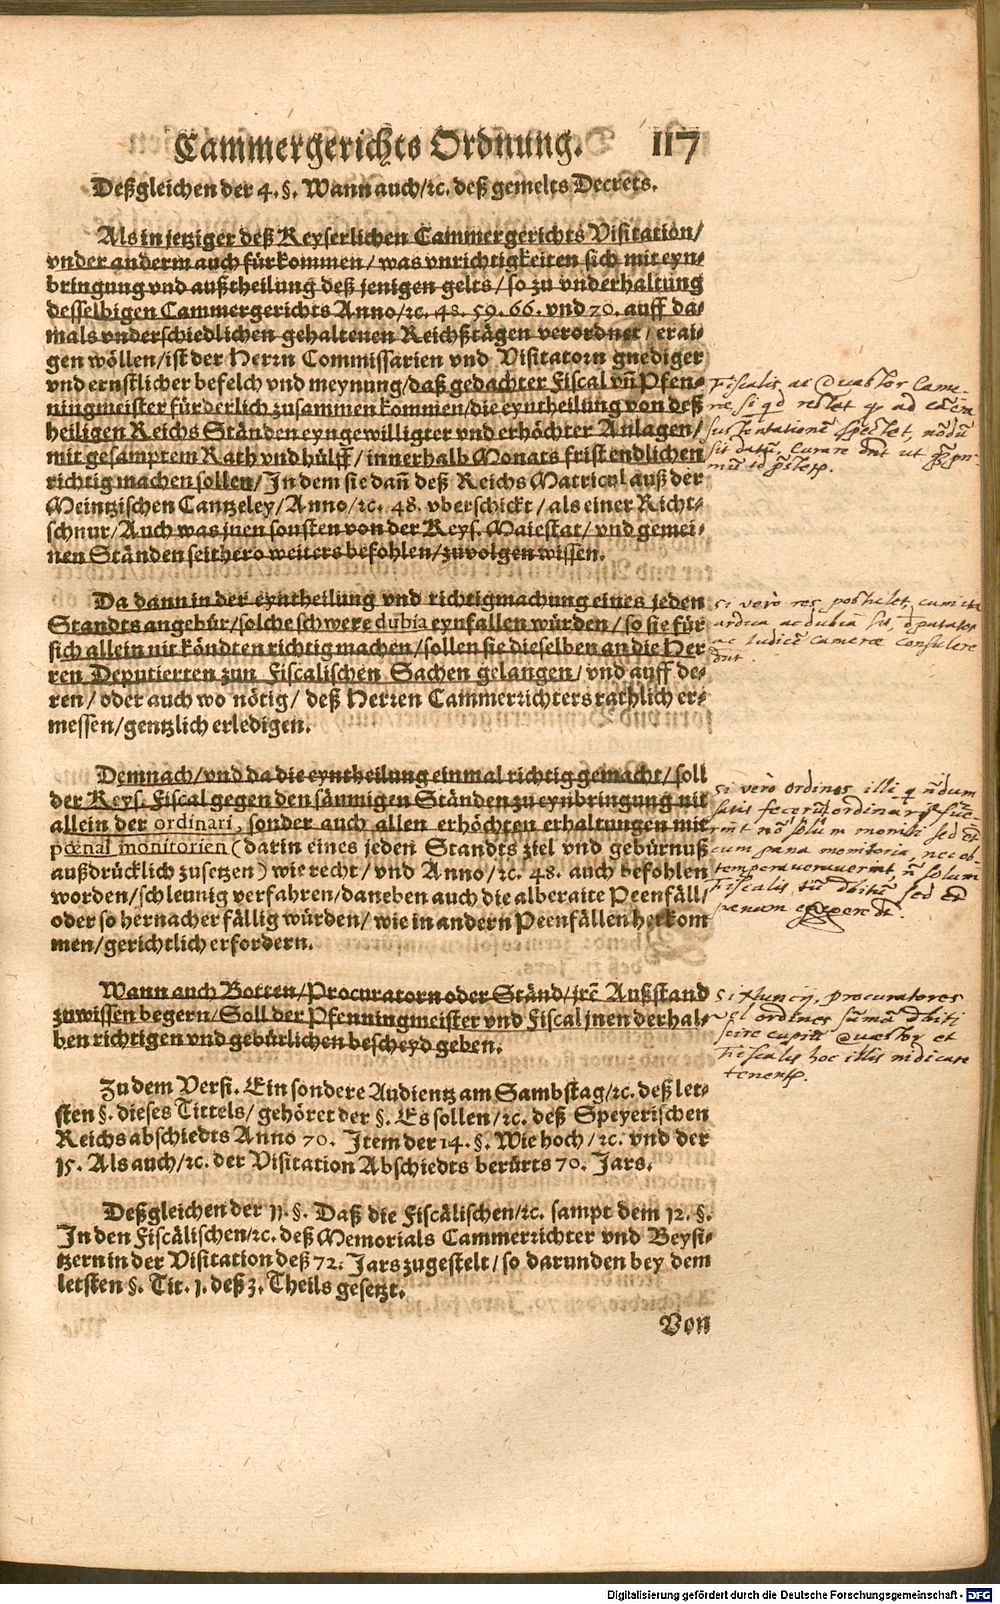 Cammergerichts Ordnung. 117
Deßgleichen der 4. §. Wann auch/ꝛc. deß gemelts Decrets.
Als in jetziger deß Keyserlichen Cammergerichts Visitation/
vnder anderm auch fürkommen/was vnrichtigkeiten sich mit eyn-
bringung vnd außtheilung deß jenigen gelts/so zu vnderhaltung
desselbigen Cammergerichts Anno/ꝛc. 48. 59. 66. vnd 70. auff da-
mals vnderschiedlichen gehaltenen Reichßtägen verordnet/erai-
gen wöllen/ist der Herrn Commissarien vnd Visitatorn gnediger
vnd ernstlicher befelch vnd meynung/daß gedachter Fiscal vñ Pfen-
ningmeister fürderlich zusammen kommen/die eyntheilung von deß
heiligen Reichs Ständen eyngewilligter vnd erhöchter Anlagen/
mit gesamptem Rath vnd hülff/innerhalb Monats frist endlichen
richtig machen sollen/In dem sie dañ deß Reichs Matricul auß der
Meintzischen Cantzeley/Anno/ꝛc. 48. vberschickt/als einer Richt-
schnur/Auch was jnen sonsten von der Keys. Maiestat/vnd gemei-
nen Ständen seithero weiters befohlen/zuvolgen wissen.
Fiscalis ac Quæstor Came-
sustentationē spectet, nōdū
sit datū. Curare dnt ut
Da dann in der eyntheilung vnd richtigmachung eines jeden
Standts angebür/solche schwere dubia eynfallen würden/so sie für
sich allein nit köndten richtig machen/sollen sie dieselben an die Her-
ren Deputierten zun Fiscalischen Sachen gelangen/vnd auff de-
ren/oder auch wo nötig/deß Herren Cammerrichters rathlich er-
messen/gentzlich erledigen.
si vero res postulet, cum
ardua ac dubia sit, dputatos
ac Iudicē Cameræ consulere
dnt.
Demnach/vnd da die eyntheilung einmal richtig gemacht/soll
der Keys. Fiscal gegen den säumigen Ständen zu eynbringung nit
allein der ordinari, sonder auch allen erhöchten erhaltungen mit
pœnal monitorien (darin eines jeden Standts ziel vnd gebürnuß
außdrücklich zusetzen) wie recht/vnd Anno/ꝛc. 48. auch befohlen
worden/schleunig verfahren/daneben auch die alberaite Peenfäll/
oder so hernacher fällig würden/wie in andern Peenfällen herkom
men/gerichtlich erfordern.
si vero ordines illi q nōdum
satis fecerūt
rint nō solum moniti sed
cum pœna monitoria, nec ob-
Fiscalis
Wann auch Botten/Procuratorn oder Ständ/jrē Außstand
zuwissen begern/Soll der Pfenningmeister vnd Fiscal jnen derhal-
ben richtigen vnd gebürlichen bescheyd geben.
Si Nuncij, procuratores
vel ordines sūmā dbiti
scire cupiūt Quæstor et
Fiscalis hoc illis indicare
tenentr.
Zu dem Versi. Ein sondere Audientz am Sambstag/ꝛc. deß let-
sten §. dieses Tittels/gehöret der §. Es sollen/ꝛc. deß Speyerischen
Reichsabschiedts Anno 70. Item der 14. §. Wie hoch/ꝛc. vnd der
15. Als auch/ꝛc. der Visitation Abschiedts berürts 70. Jars.
Deßgleichen der 11. §. Daß die Fiscälischen/ꝛc. sampt dem 12. §.
In den Fiscälischen/ꝛc. deß Memorials Cammerrichter vnd Beysi-
tzern in der Visitation deß 72. Jars zugestelt/so darunden bey dem
letsten §. Tit. 1. deß 3. Theils gesetzt.
Von
Digitalisierung gefördert durch die Deutsche Forschungsgemeinschaft - DFG